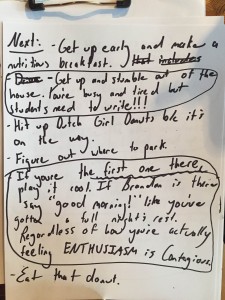 Next: - Get up early and make a
nutritious breakfast. that includes
- Get up and stumble out of the
house. You're busy and tired but
students need to write!!!
- Hit up Dutch Girl Donuts b/c it's
on the way.
- Figure out where to park.
If you're the first one there,
play it cool. If Brandon is there
say "good morning!" like you've
gotta a full night's rest.
Regardless of how you're actually
feeling ENTHUSIASM is Contagious.
- Eat that donut.